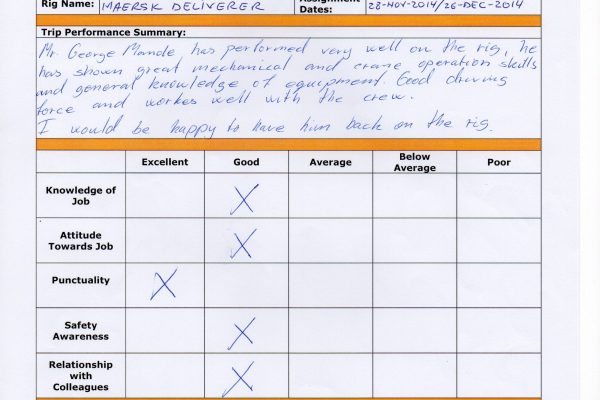 Rig Name: MAERSK DELIVERER Assignment Dates: 28-NOV-2014/26-DEC-2014
Trip Performance Summary:
Mr. George Manole has performed very well on the rig, he
has shown great mechanical and crane operation skills
and general knowledge of equipment. Good driving
force and workes well with the crew.
I would be happy to have him back on the rig.
Excellent Good Average Below Average Poor
Knowledge of Job X
Attitude Towards Job X
Punctuality X
Safety Awareness X
Relationship with Colleagues X